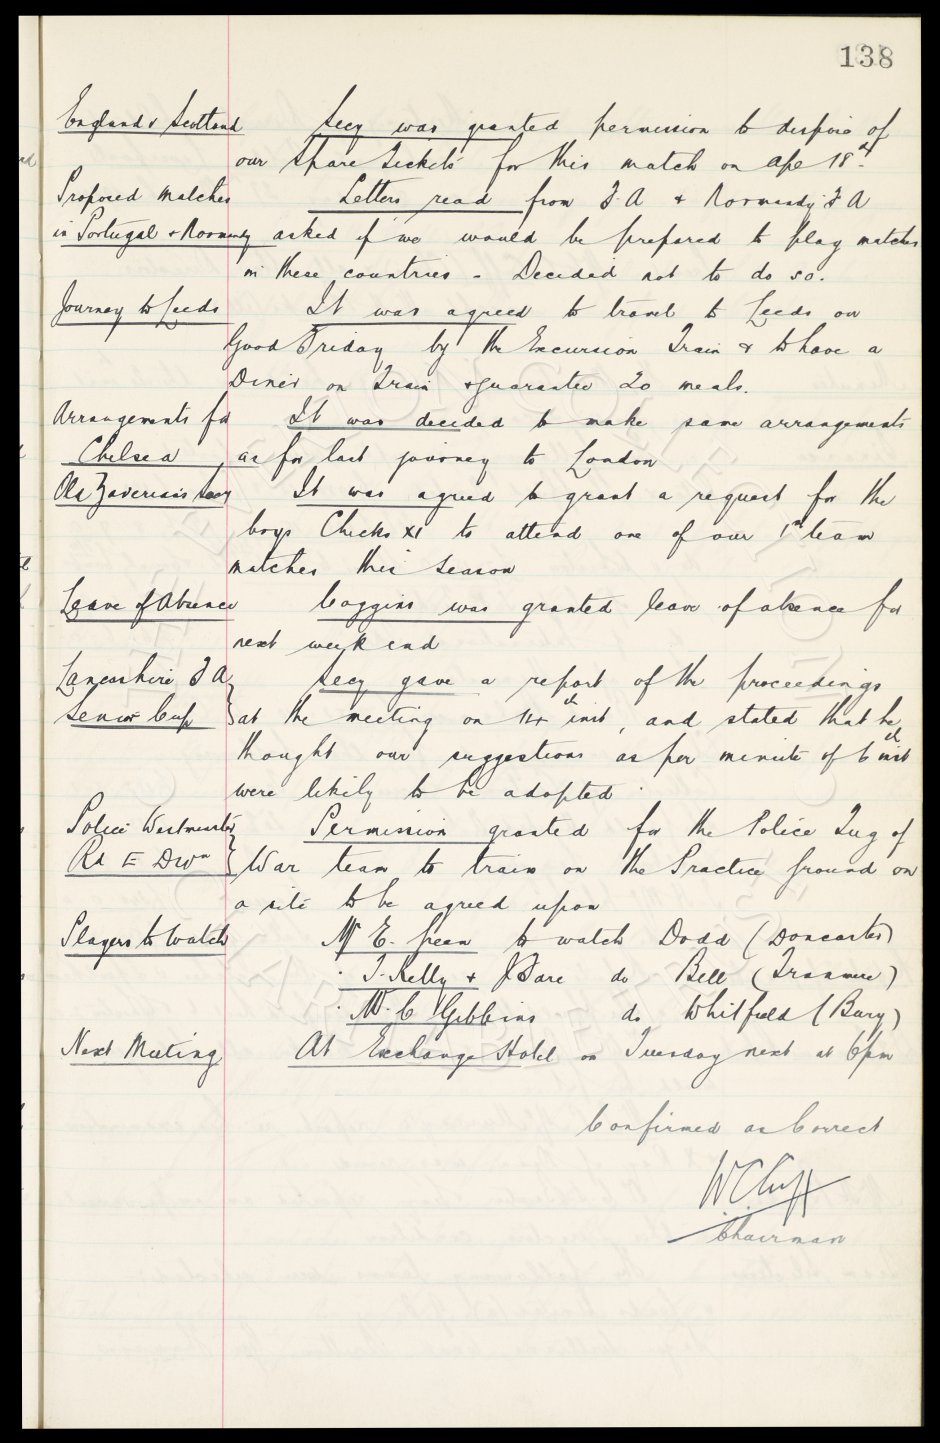 138
England v Scotland Secy was granted permission to dispose of
our spare tickets for this match on Apl 18th.
Proposed matches Letters read from F.A & Normandy F A
in Portugal & Normandy asked if we would be prepared to play matches
in these countries - Decided not to do so.
Journey to Leeds It was agreed to travel to Leeds on
Good Friday by the Excursion Train & to have a
Diner on Train & guarantee 20 meals.
Arrangements for It was decided to make same arrangements
Chelsea as for last journey to London
Old Xaverians It was agreed to grant a request for the
boys Checks XI to attend one of our 1st team
matches this season
Leave of Absence Coggins was granted leave of absence for
next week end
Lancashire F A Secy gave a report of the proceedings
Senior Cup at the meeting on inst, and stated that he
thought our suggestions as per minute of 6th inst
were likely to be adopted.
Police Westminster Permission granted for the Police Tug of
Rd E Divn War team to train on the Practice ground on
a site to be agreed upon
Players to Watch Mr E. Green to watch Dodd (Doncaster)
" T. Kelly & J Bare do Bell (Tranmere)
" W. C Gibbins do Whitfield (Bury)
Next Meeting At Exchange Hotel on Tuesday next at 6pm
Confirmed as Correct
W C Cuff
Chairman